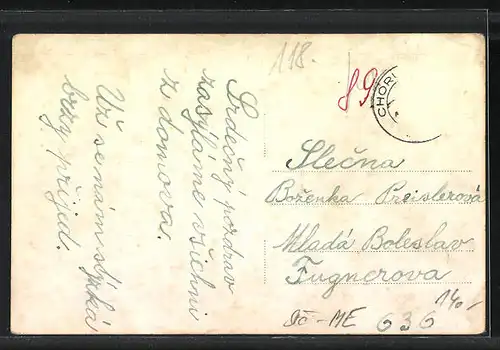 118.
89
CHORI
Srdečný pozdrav
zasýláme všichni
z domova.
Už se nám stýská
brzy přijed.
Slečna
Boženka Preislerová
Mladá Boleslav
Fugnerova
140,-
ME 636